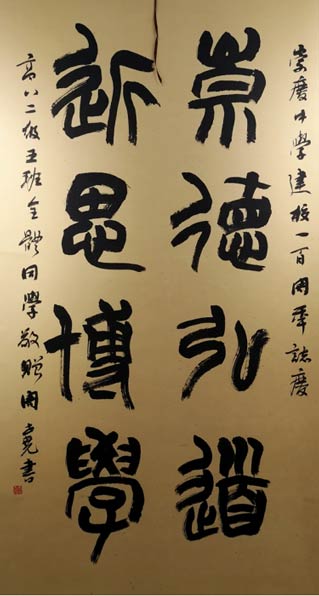 崇慶中學建校一百周年誌慶
崇德弘道
近思博學
高八二級五班全體同學敬贈周書